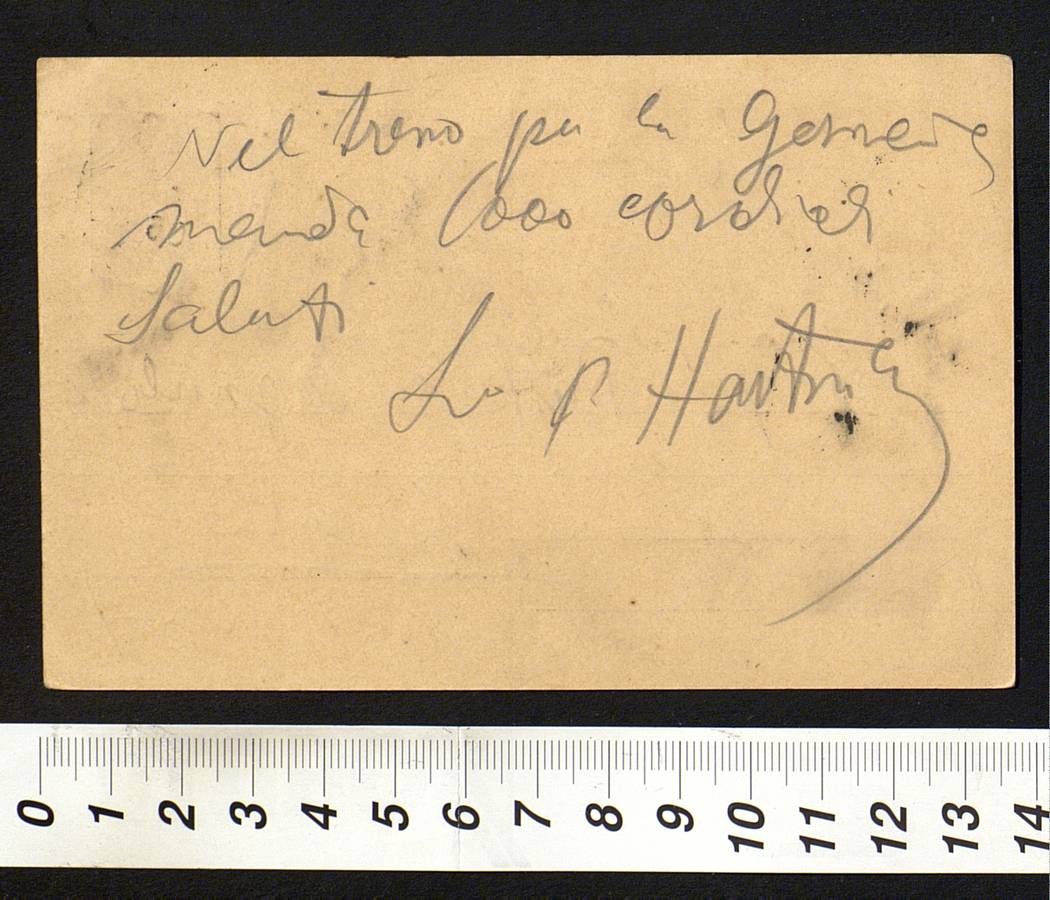 Nel treno per la Germania
manda 1000 cordiali
Saluti
Lo P Hartm
0 1 2 3 4 5 6 7 8 9 10 11 12 13 14